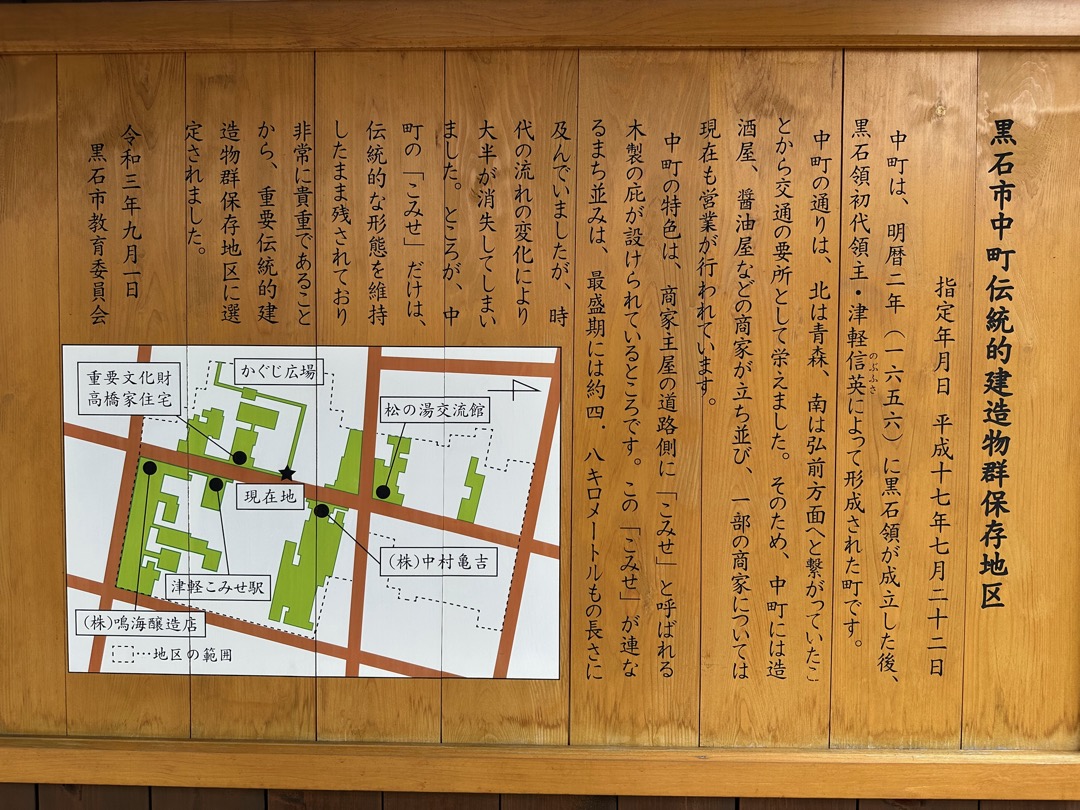 黒石市中町伝統的建造物群保存地区
指定年月日 平成十七年七月二十二日
中町は、明暦二年(一六五六)に黒石領が成立した後、
黒石領初代領主・津軽信英によって形成された町です。
のぶふさ
中町の通りは、北は青森、南は弘前方面へと繋がっていたこ
とから交通の要所として栄えました。そのため、中町には造
酒屋、醤油屋などの商家が立ち並び、一部の商家については
現在も営業が行われています。
中町の特色は、商家主屋の道路側に「こみせ」と呼ばれる
木製の庇が設けられているところです。この「こみせ」が連な
るまち並みは、最盛期には約四.八キロメートルもの長さに
及んでいましたが、時
代の流れの変化により
大半が消失してしまい
ました。ところが、中
町の「こみせ」だけは、
伝統的な形態を維持
したまま残されており
非常に貴重であること
から、重要伝統的建
造物群保存地区に選
定されました。
令和三年九月一日
黒石市教育委員会
重要文化財
高橋家住宅
かぐじ広場
松の湯交流館
現在地
(株)中村亀吉
津軽こみせ駅
(株)鳴海醸造店
…地区の範囲